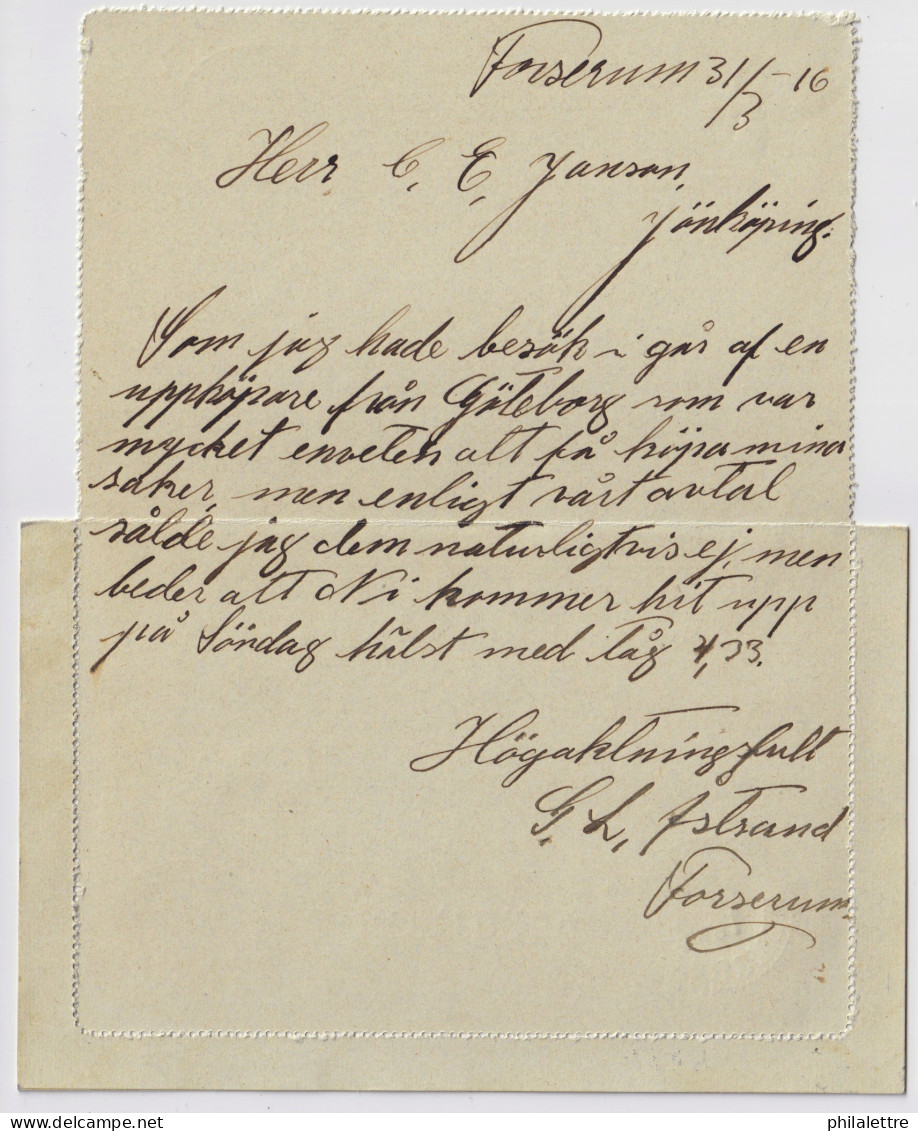 Forserum 31/3 - 16
Herr C. E. Janson,
Jönköping.
Som jag hade besök i går af en
uppköpare från Göteborg som var
mycket enveten att få köpa mina
saker, men enligt vårt avtal
sålde jag dem naturligtvis ej, men
beder att Ni kommer hit upp
på Söndag hälst med tåg 4,33.
Högaktningsfult
G. L. Åstrand
Forserum.
philalettre